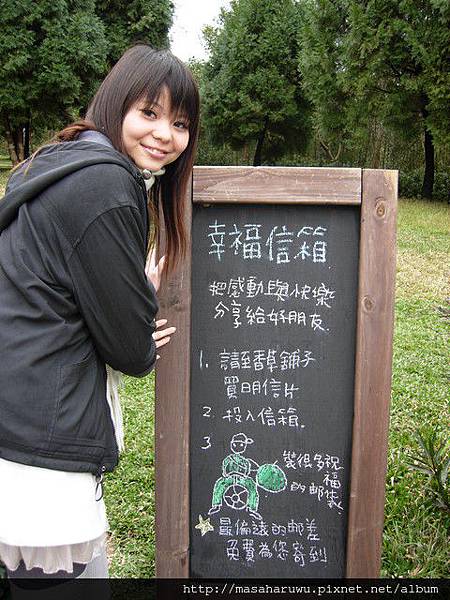 幸福信箱
把感動與快樂
分享給好朋友.
1. 請至香草舖子
買明信片
2. 投入信箱.
3
裝很多祝
福
的郵袋
最偏遠的郵差
免費為您寄到
http://masaharuwu.pixnet.net/album